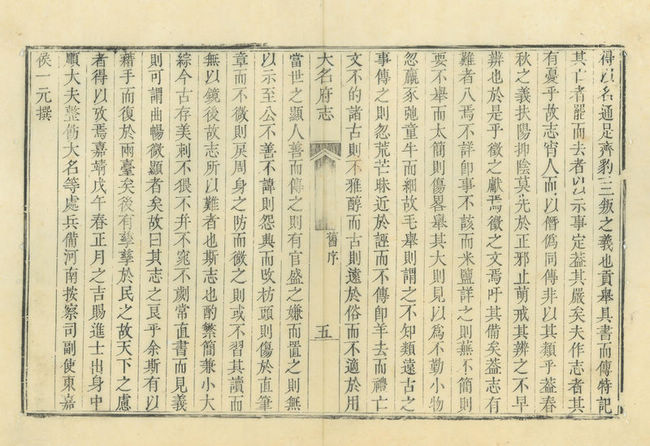 得以名通是齊豹三叛之義也貢舉具書而傳特記
其亡者罷而去者以示事定益其嚴矣夫作志者其
有憂乎故志宵人而以僭僞同傳非以其類乎蓋春
秋之義扶陽抑陰莫先於正邪止萌戒其辨之不早
辨也於是乎徵之獻焉徵之文焉吁其備矣蓋志有
難者八焉不詳卽事不該而米鹽詳之則蕪不簡則
要不舉而太簡則傷畧舉其大則見以爲不勤小物
忽羸豕虺童牛而細故毛舉則謂之不知類遠古之
事傳之則忽荒芒昧近於誣而不傳卽羊去而禮亡
文不的諸古則不雅醇而古則遠於俗而不適於用
大名府志
舊序
五
當世之顯人善而傳之則有官盛之嫌而置之則無
以示至公不善不諱則怨典而攺枋頭則傷於直筆
章而不微則戾周身之防而微之則或不習其讀而
無以鏡後故志所以難者也斯志也酌繁簡兼小大
綜今古存美刺不猥不幷不窕不劌常直書而見義
則可謂曲暢微顯者矣故曰其志之良乎余斯有以
藉手而復於兩臺矣後有孳孳於民之故天下之慮
者得以攷焉嘉靖戊午春正月之吉賜進士出身中
順大夫整飭大名等處兵備河南按察司副使東嘉
侯一元撰